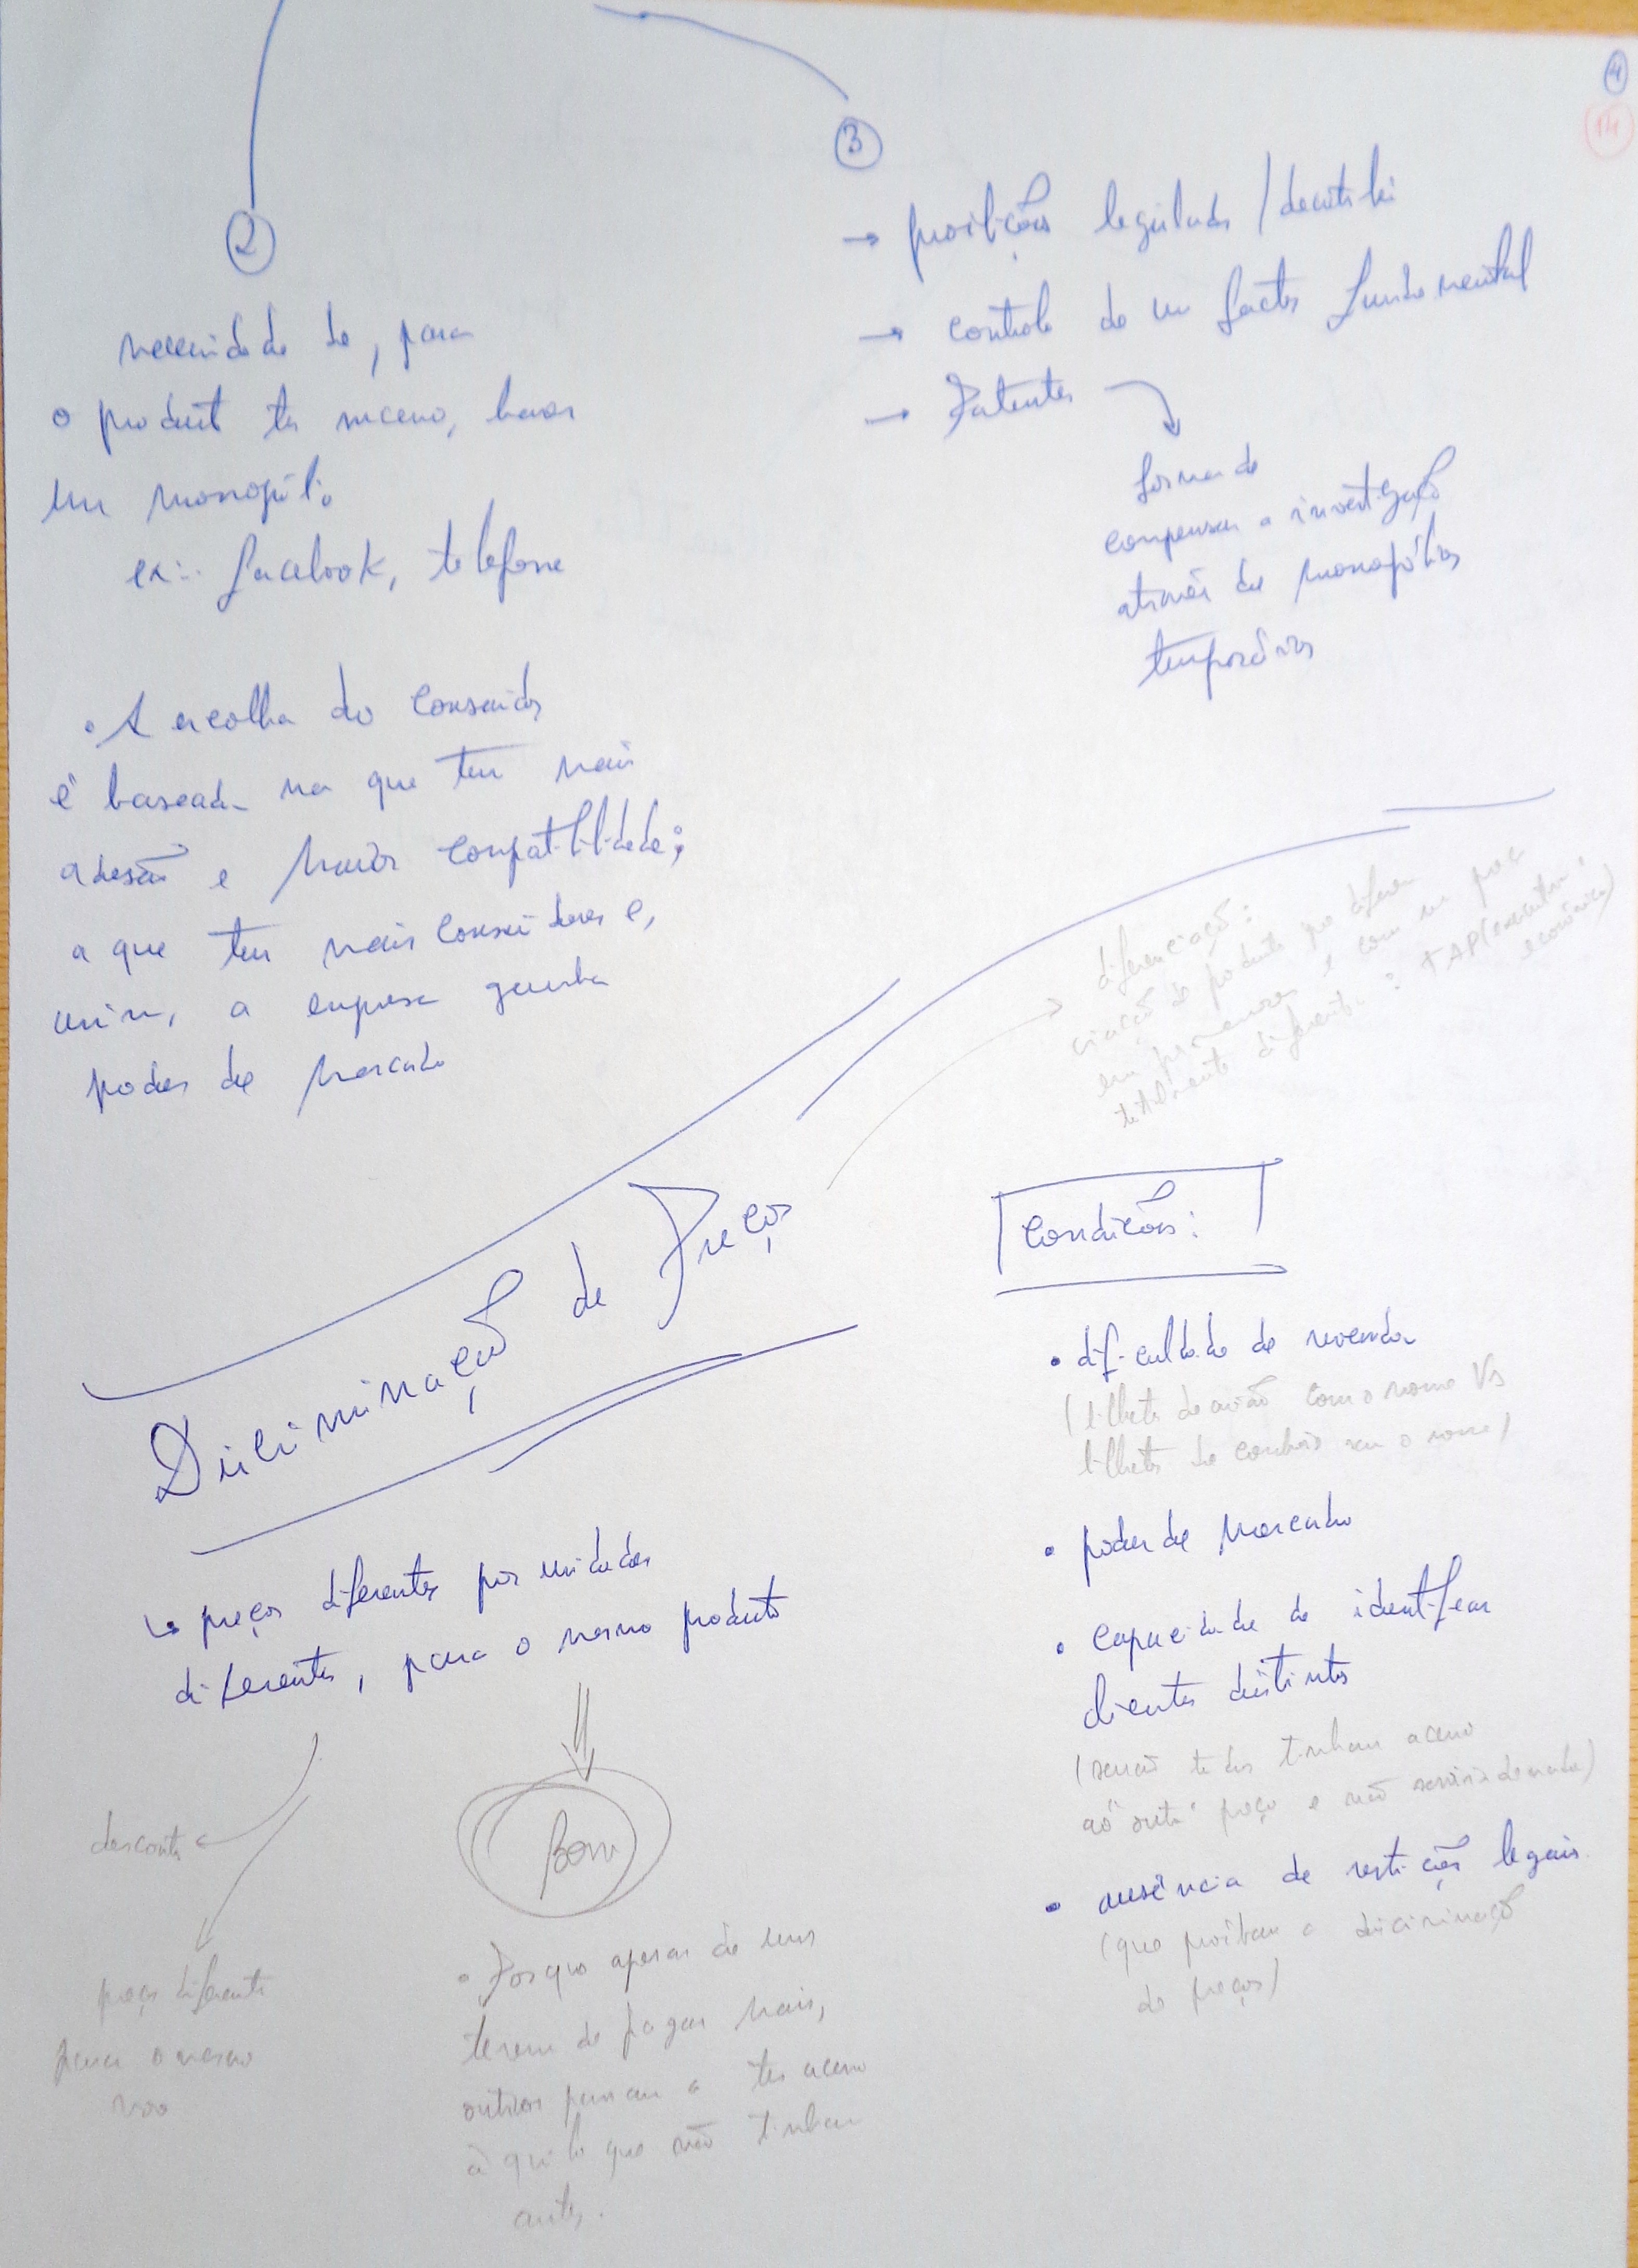 4
14
2
necessidade de, para
o produto ter sucesso, haver
um monopólio
ex.: facebook, telefone
• A escolha do consumidor
é baseada na que tem mais
adesão e maior compatibilidade;
a que tem mais consumidores e,
assim, a empresa ganha
poder de mercado
3
→ proibições legislador / decreto lei
→ controlo de um factor fundamental
→ Patentes
forma de
compensar a investigação
através de monopólios
temporários
diferenciação:
criação de produtos que diferem
em pormenores e com um preço
totalmente diferente: TAP (executiva
económica)
Discriminação de Preços
↳ preços diferentes por unidades
diferentes, para o mesmo produto
desconto
preço diferente
para o mesmo
voo
Bom
• Porque apesar de uns
terem de pagar mais,
outros passam a ter acesso
àquilo que não tinham
antes.
Condições:
• dificuldade de revenda
(bilhete de avião com o nome Vs
bilhete de comboio sem o nome)
• poder de mercado
• capacidade de identificar
clientes distintos
(senão todos tinham acesso
ao "outro" preço e não serviria de nada)
• ausência de restrições legais
(que proíbam a discriminação
de preços)